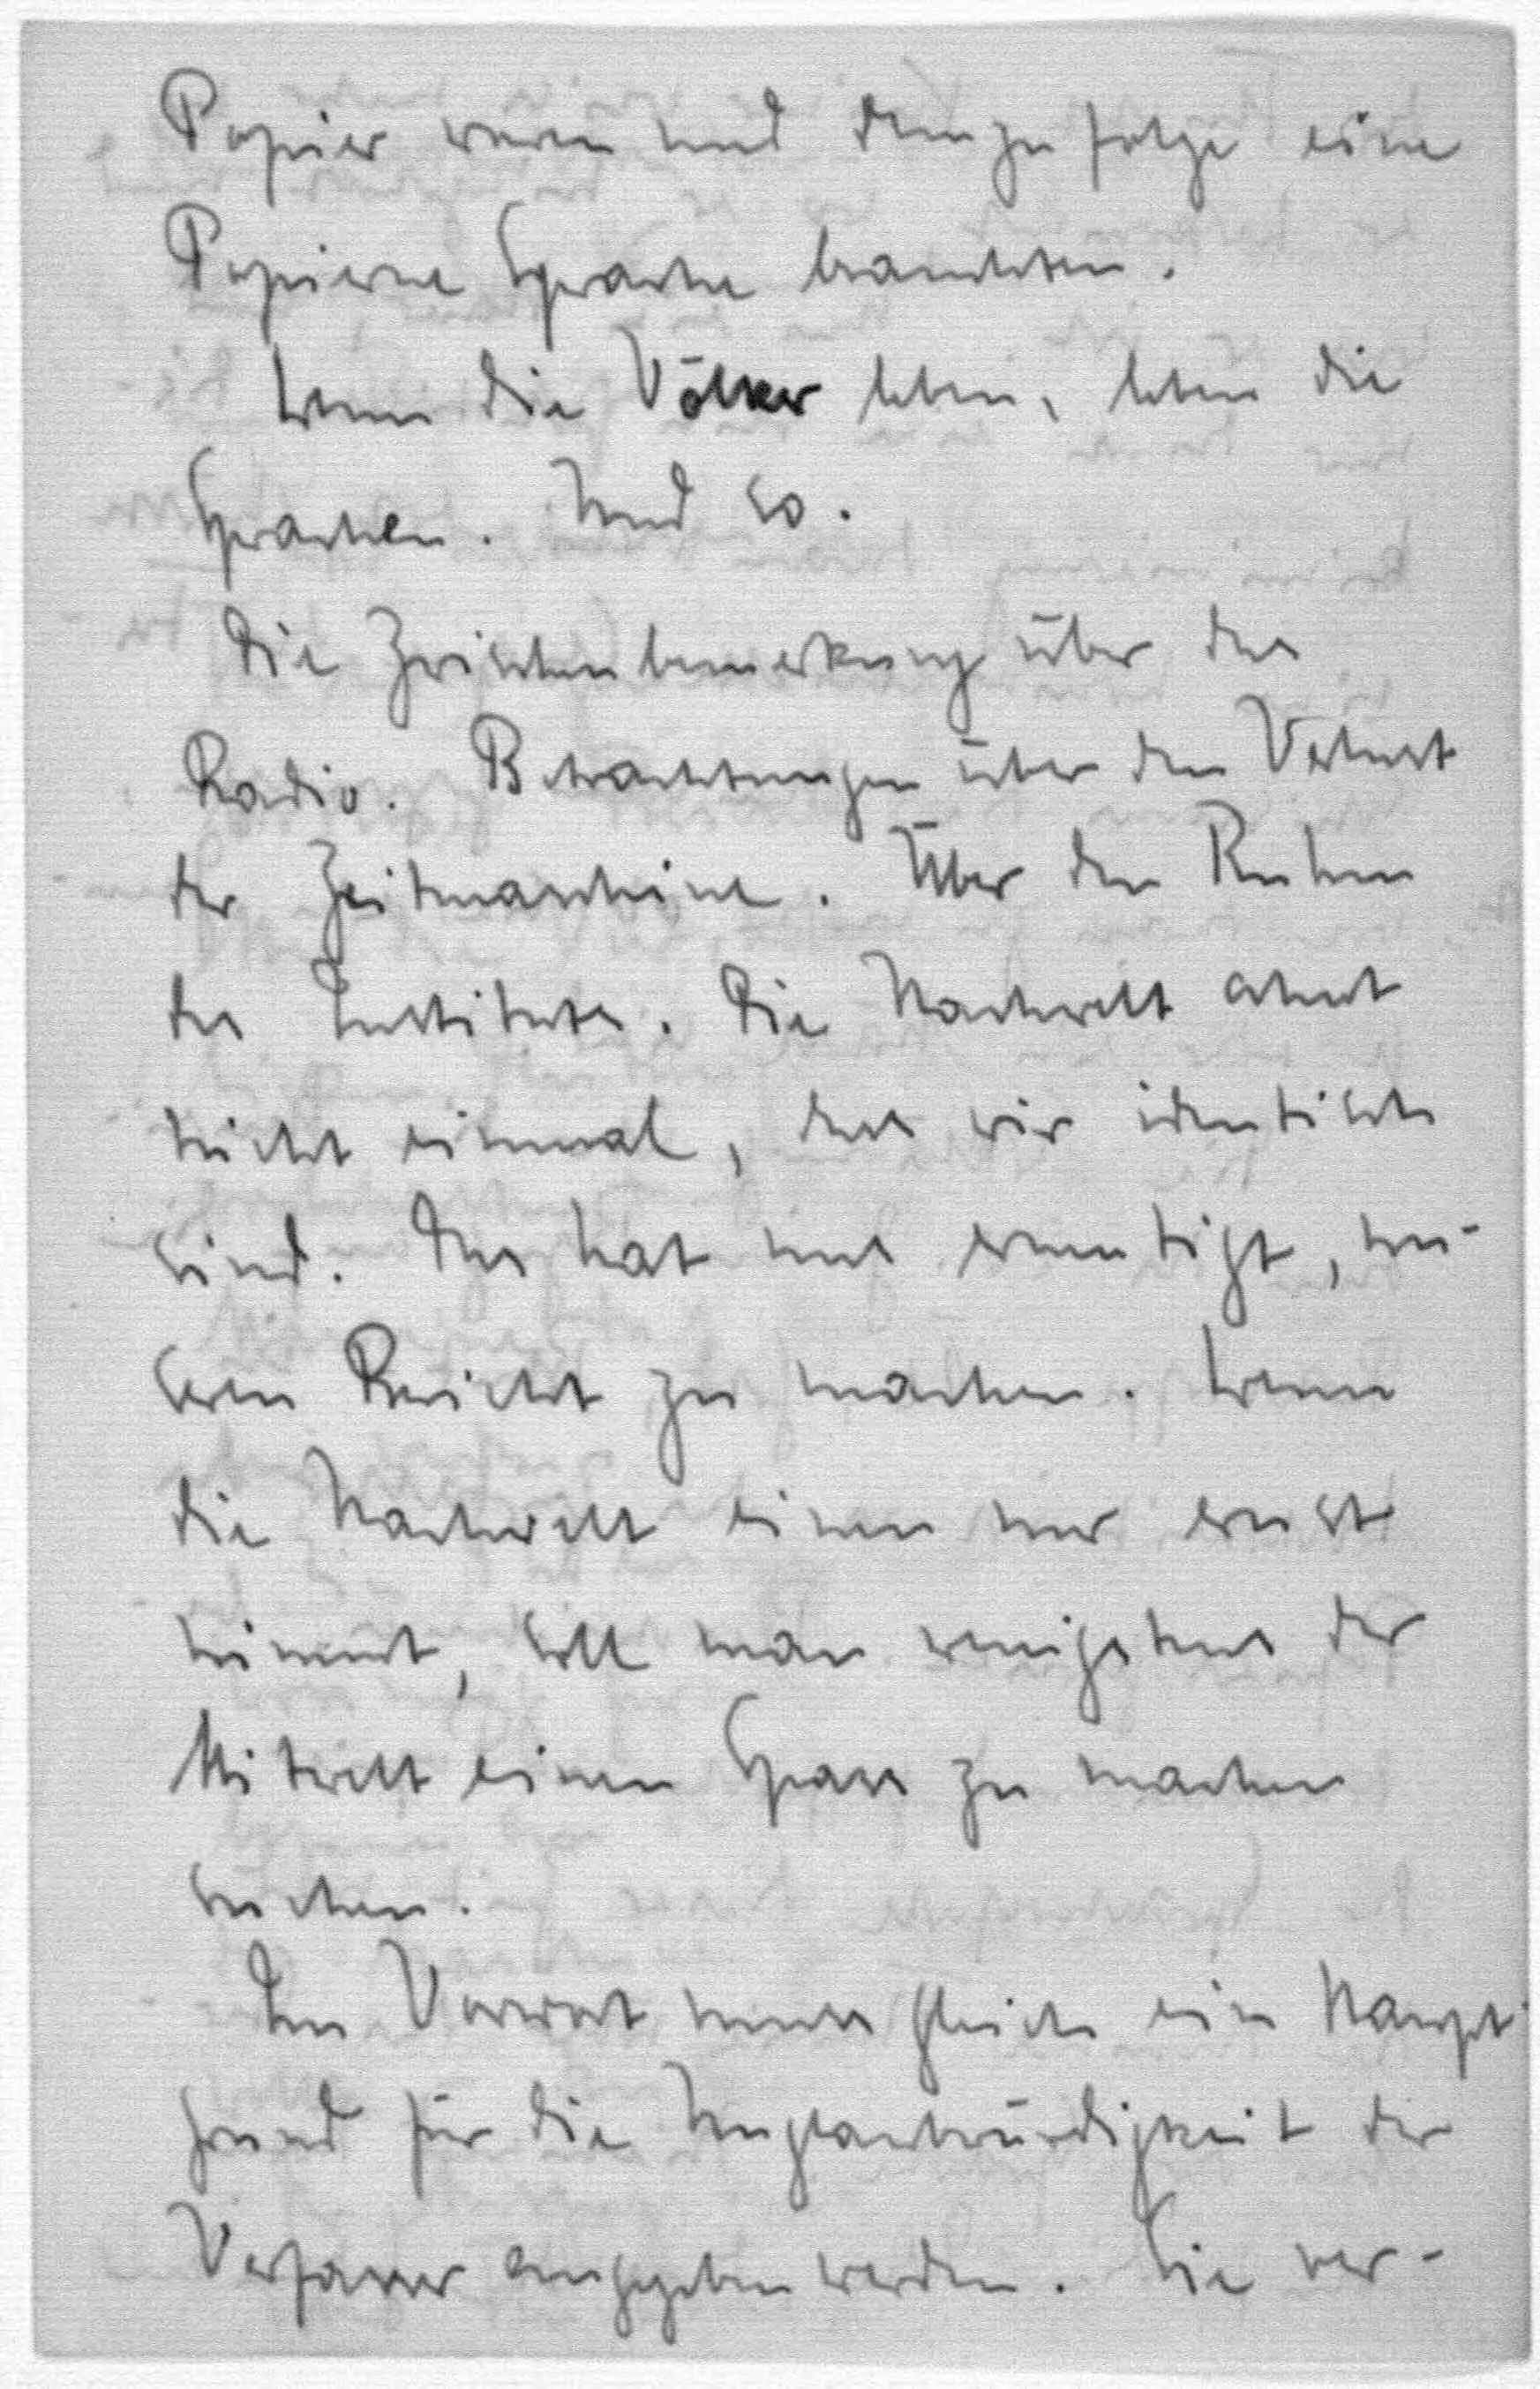 Papier waren und demzufolge eine
Papierne Sprache brauchten.
Wenn die Völker leben, leben die
Sprachen. Und so.
Die Zwischenbemerkung über das
Radio. Betrachtungen über den Verlust
der Zeitmaschine. Über den Ruhm
des Institutes. Die Nachwelt ahnt
nicht einmal, das wir identisch
sind. Das hat uns ermutigt, un-
seren Bericht zu machen. Wenn
die Nachwelt einen nur ernst
nimmt, soll man wenigstens der
Mitwelt einen Spass zu machen
suchen.
Im Vorwort muss gleich ein Haupt-
grund für die Unglaubwürdigkeit der
Verfasser angegeben werden. Sie ver-